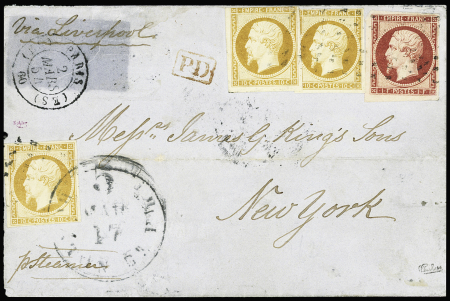 via Liverpool
PARIS
2
MARS
57
(60)
PD
EMPIRE FRANC.
10 C. POSTES 10 C.
EMPIRE FRANC.
10 C. POSTES 10 C.
EMPIRE FRANC.
1 F. POSTES 1 F.
Messrs James G. King's Sons
EMPIRE FRANC.
10 C. POSTES 10 C.
17
New York
p steamer